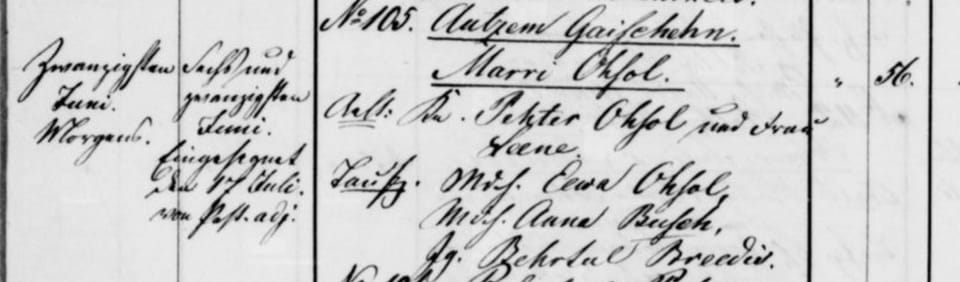 Zwanzigsten
Juni.
Morgens.
Sechs und
zwanzigsten
Juni.
Eingesegnet
den 17 Juli.
von Past. adj.
No 105. Autzem Gaischehn.
Marri Ohsol.
Aelt: Kn. Pehter Ohsol und Frau
Leene.
Taufz. Mdch. Eewa Ohsol,
Mdch. Anna Busch,
Jg. Behrtul Breedis.
" 56.